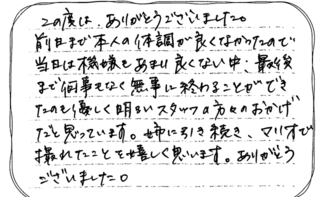 この度は、ありがとうございました。
前日まで本人の体調が良くなかったので
当日は機嫌もあまり良くない中、最後
まで何事もなく無事に終わることができ
たのも優しく明るいスタッフの方々のおかげ
だと思っています。姉に引き続き、マリオで
撮れたことを嬉しく思います。ありがとう
ございました。